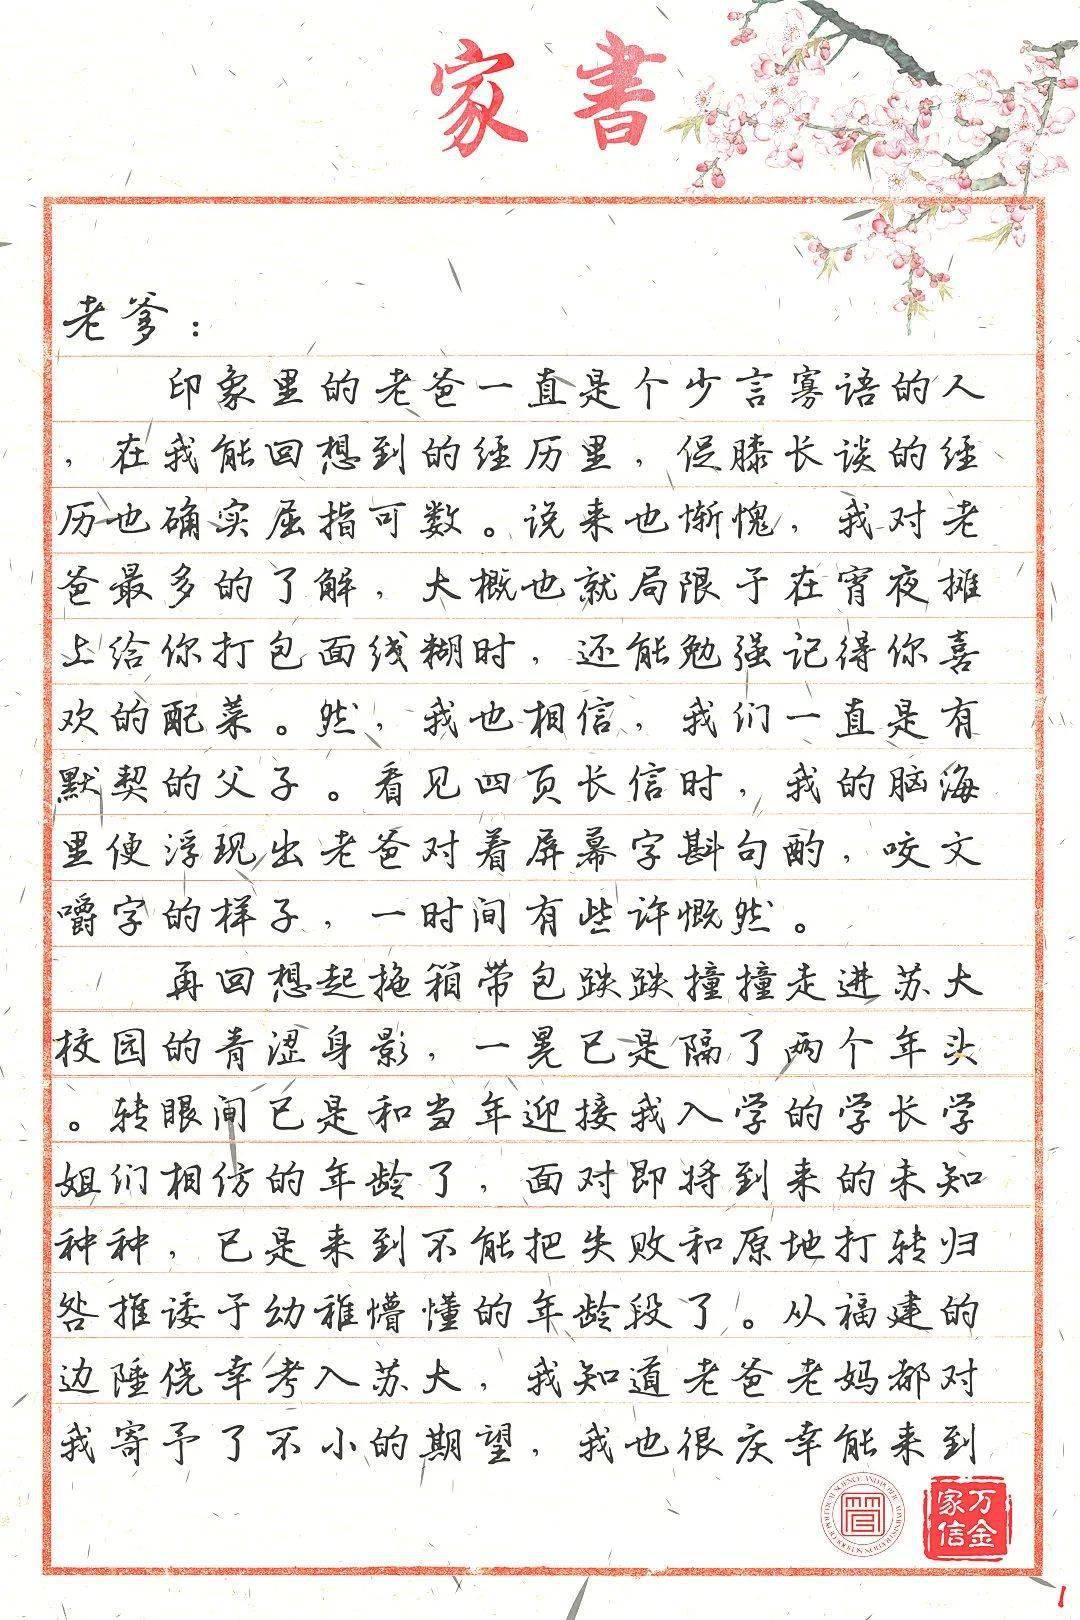 家書
老爹：
印象里的老爸一直是个少言寡语的人
，在我能回想到的经历里，促膝长谈的经
历也确实屈指可数。说来也惭愧，我对老
爸最多的了解，大概也就局限于在宵夜摊
上给你打包面线糊时，还能勉强记得你喜
欢的配菜。然，我也相信，我们一直是有
默契的父子。看见四页长信时，我的脑海
里便浮现出老爸对着屏幕字斟句酌，咬文
嚼字的样子，一时间有些许慨然。
再回想起拖箱带包跌跌撞撞走进苏大
校园的青涩身影，一晃已是隔了两个年头
。转眼间已是和当年迎接我入学的学长学
姐们相仿的年龄了，面对即将到来的未知
种种，已是来到不能把失败和原地打转归
咎推诿于幼稚懵懂的年龄段了。从福建的
边陲侥幸考入苏大，我知道老爸老妈都对
我寄予了不小的期望，我也很庆幸能来到
万金
家信
1